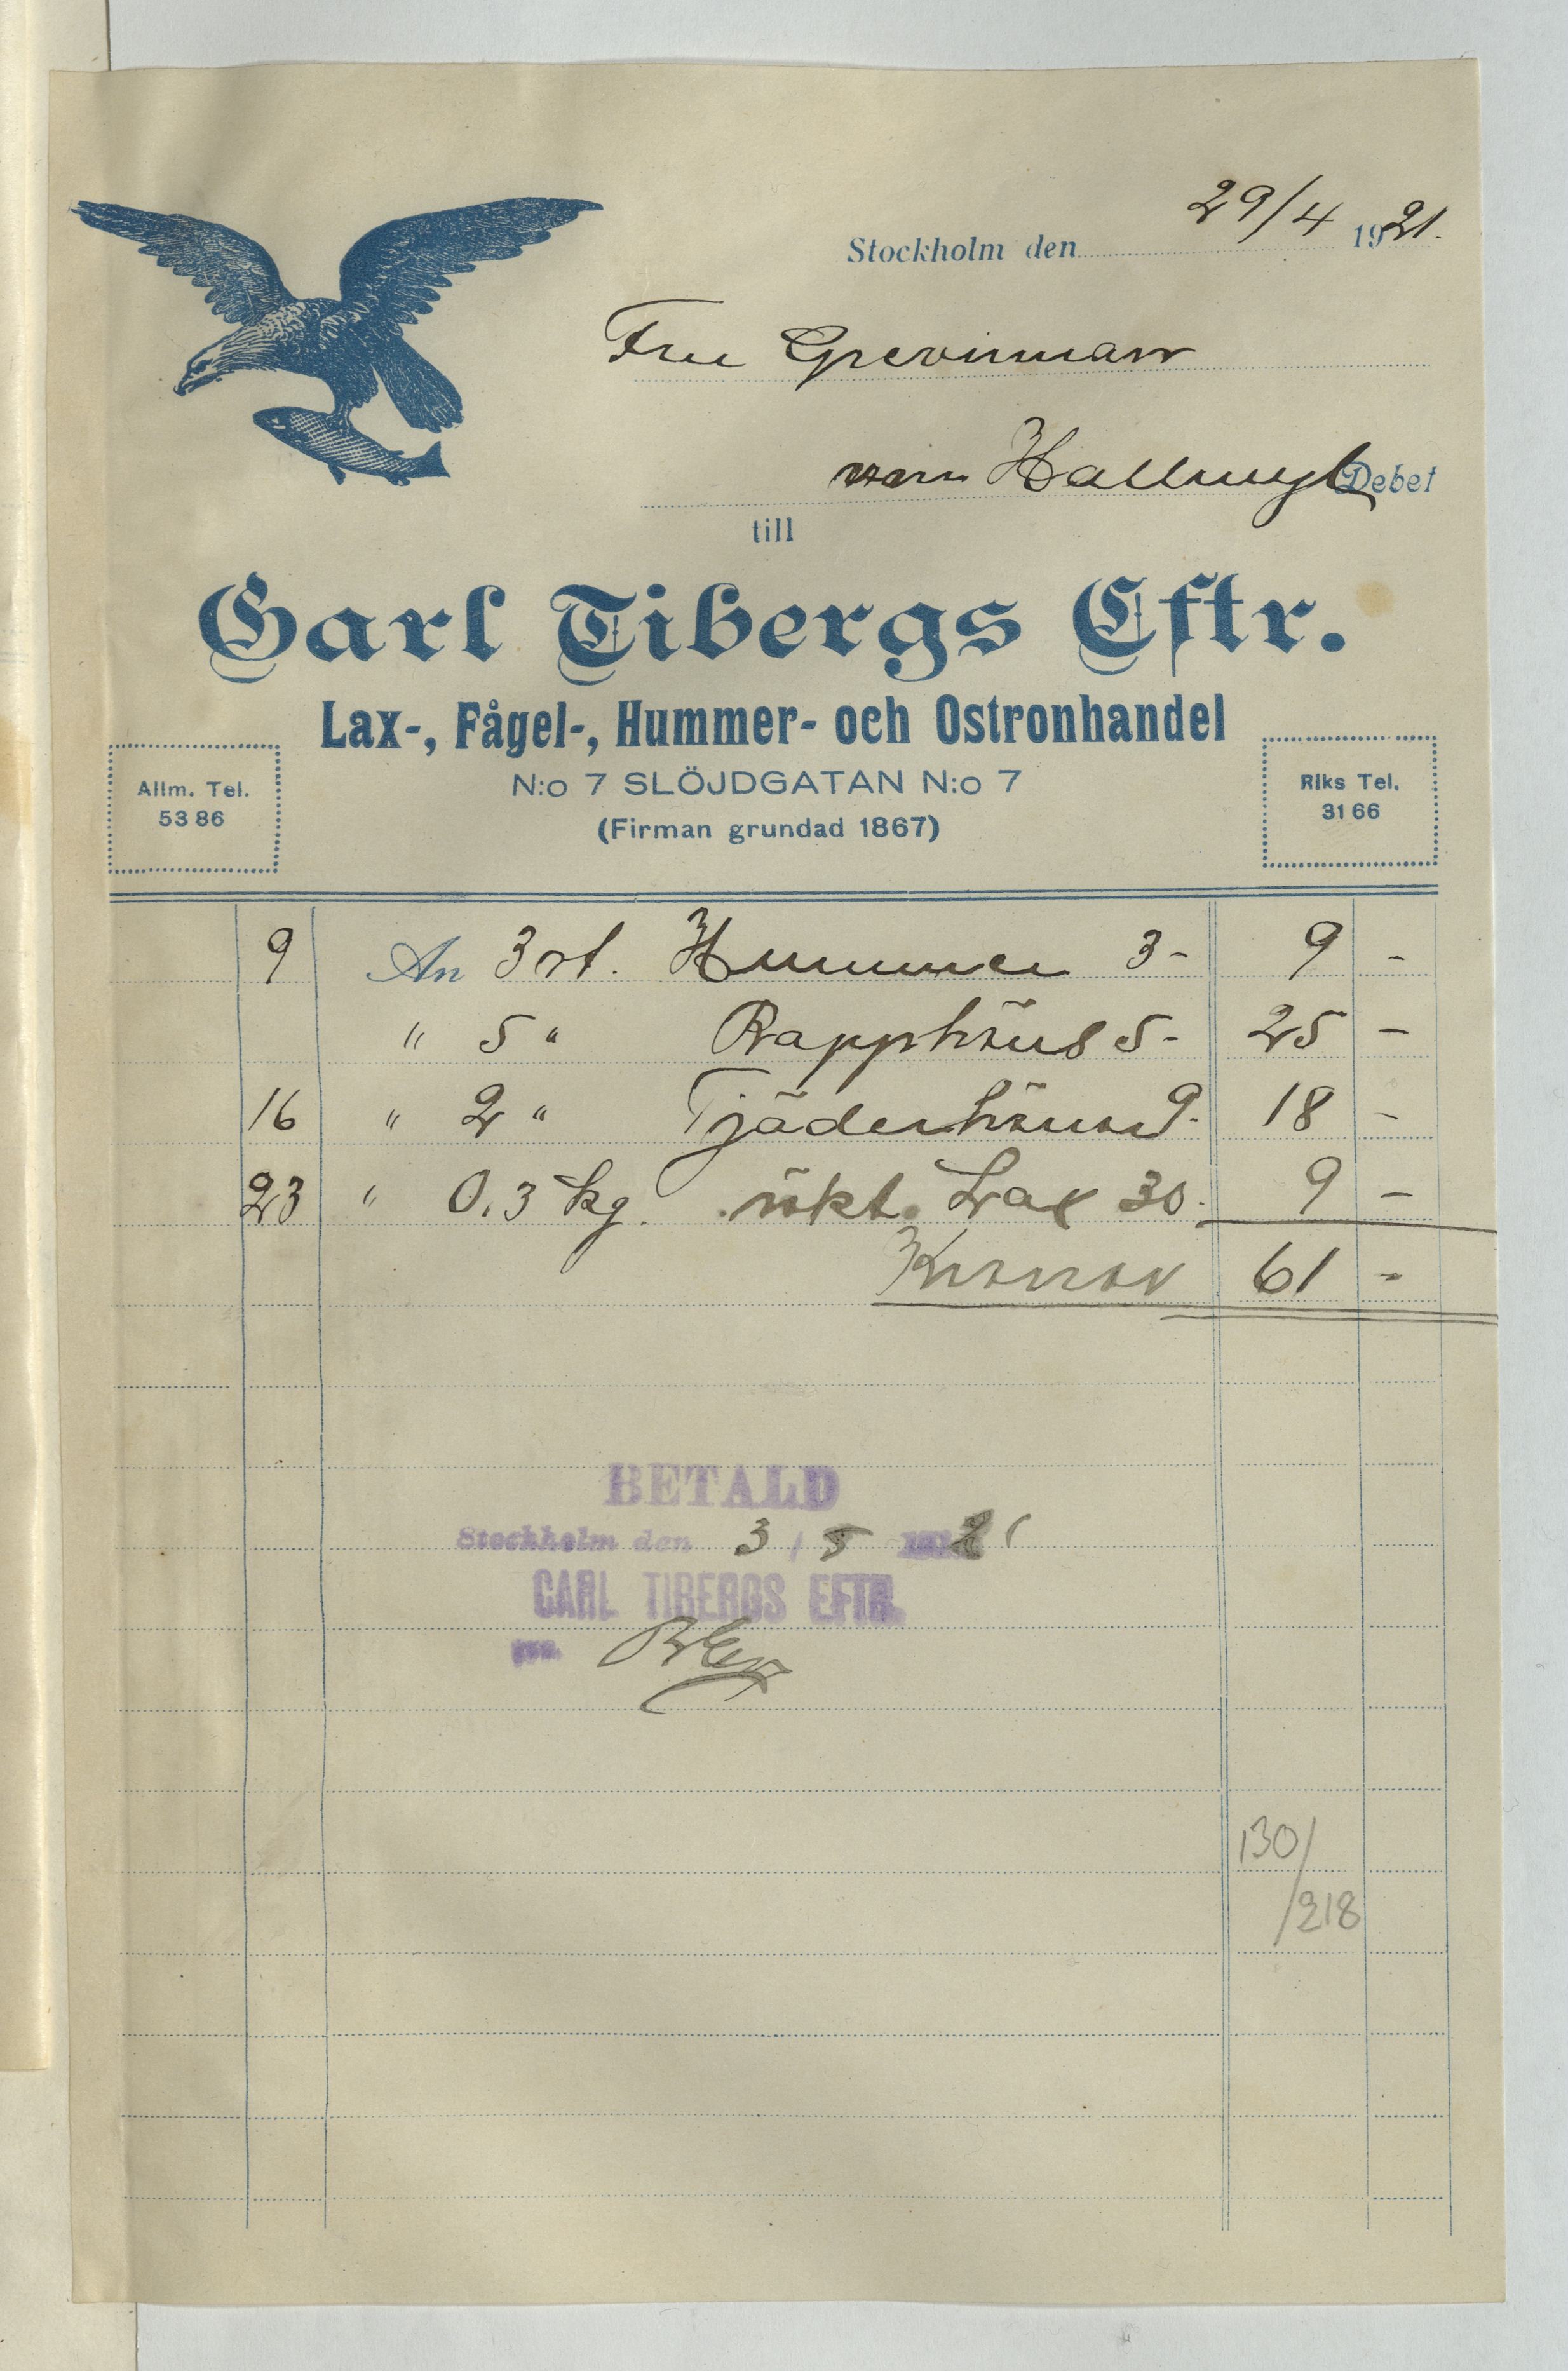 Stockholm den 29/4 1921.
Fru Grevinnan
von Hallwyl Debet
till
Carl Tibergs Eftr.
Lax-, Fågel-, Hummer- och Ostronhandel
N:o 7 SLÖJDGATAN N:o 7
(Firman grundad 1867)
Allm. Tel.
53 86
Riks Tel.
31 66
9 An 3 st. Hummer 3- 9 -
" 5 " Rapphöns 5- 25 -
16 " 2 " Tjäderhönor 9- 18 -
23 " 0,3 kg. rökt. Lax 30- 9 -
Kronor 61 -
BETALD
Stockholm den 3/5 1921
CARL TIBERGS EFTR.
130/
/218